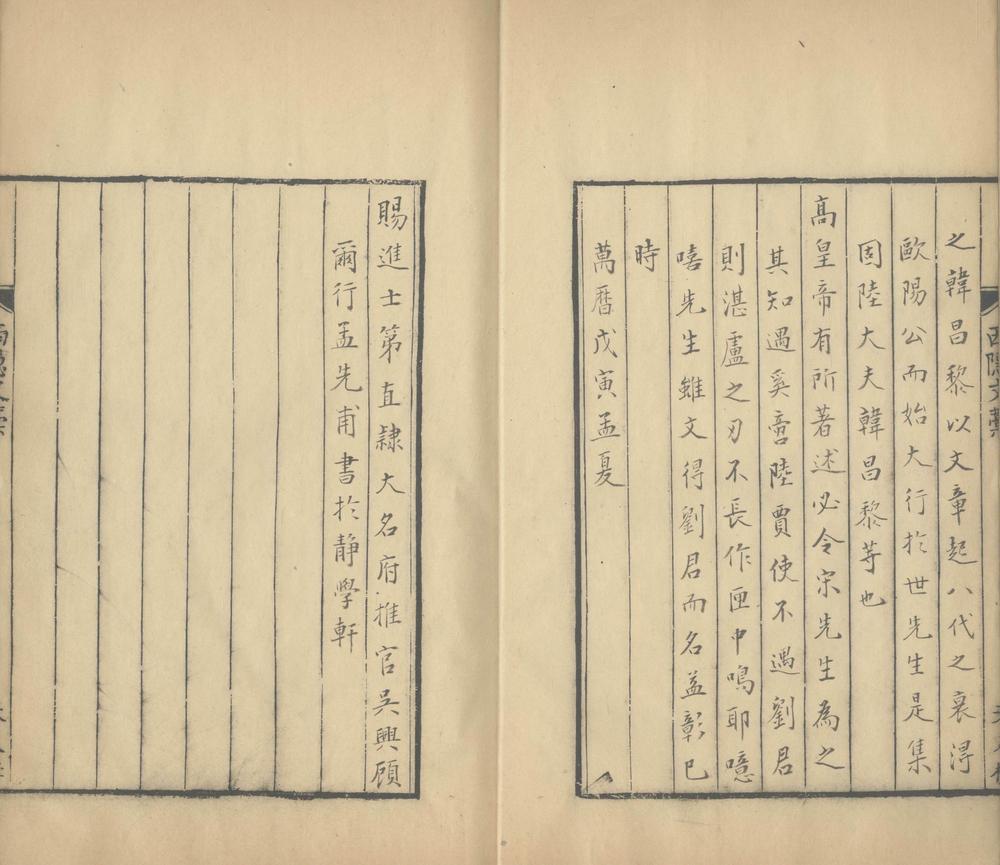 之韓昌黎以文章起八代之衰淂
歐陽公而始大行扵世先生是集
固陸大夫韓昌黎䓁也
高皇帝有所著述必令宋先生為之
其知遇奚啻陸賈使不遇劉君
則湛盧之刃不長作匣中鳴耶噫
嘻先生雖文得劉君而名益彰巳
時
萬曆戊寅孟夏
賜進士第直隷大名府推官吳興顧
爾行孟先甫書扵靜學軒